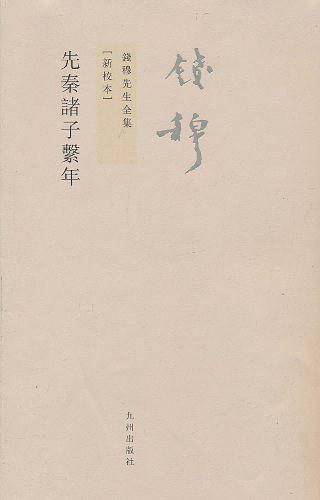 錢穆
錢穆先生全集
[新校本]
先秦諸子繫年
九州出版社